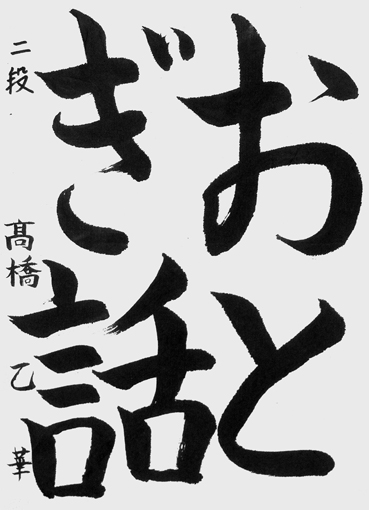 おと
ぎ話
二段 髙橋乙華